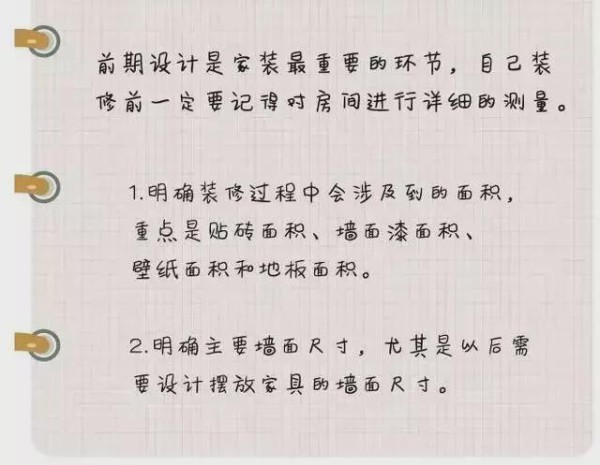 前期设计是家装最重要的环节，自己装
修前一定要记得对房间进行详细的测量。
1.明确装修过程中会涉及到的面积，
重点是贴砖面积、墙面漆面积、
壁纸面积和地板面积。
2.明确主要墙面尺寸，尤其是以后需
要设计摆放家具的墙面尺寸。